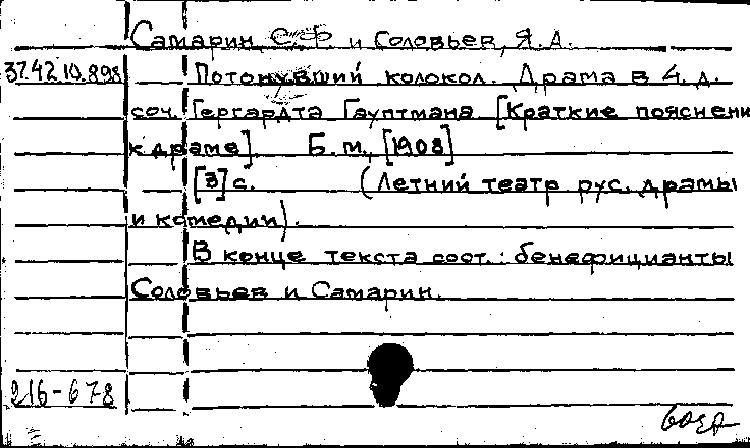 Самарин, С.Ф. и Соловьев, Я.А.
37.42.10.898 Потонувший колокол. Драма в 4 д.
соч. Гергардта Гауптмана [Краткие пояснени
к драме]. Б.м., [1908]
[3] с. (Летний театр рус. драмы
и комедии).
В конце текста сост.: бенефицианты
Соловьев и Самарин.
216-678